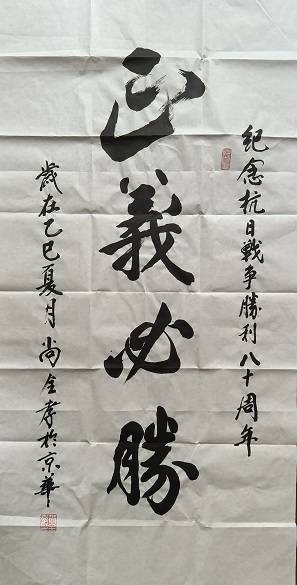 紀念抗日戰爭勝利八十周年
正義必勝
歲在乙巳夏月尚全孝於京華